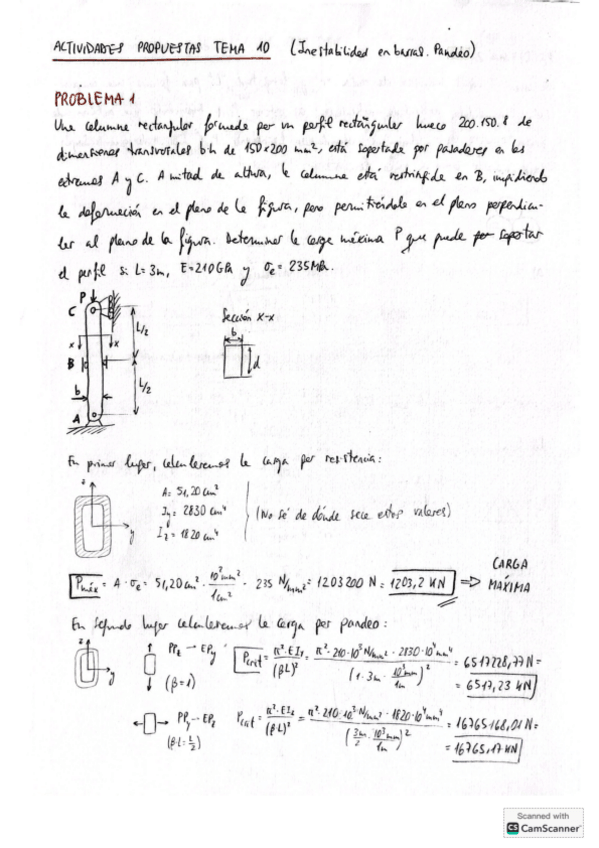 ACTIVIDADES PROPUESTAS TEMA 10 (Inestabilidad en barras. Pandeo)
PROBLEMA 1
Una columna rectangular formada por un perfil rectangular hueco 200.150.8 de
dimensiones transversales b·h de 150x200 mm², está soportada por pasadores en los
extremos A y C. A mitad de altura, la columna está restringida en B, impidiendo
la deformación en el plano de la figura, pero permitiéndola en el plano perpendicu-
lar al plano de la figura. Determinar la carga máxima P que puede soportar
el perfil si L=3m, E=210GPa y σe=235MPa.
P
C
L/2
x x
B
b
L/2
A
Sección x-x
b
d
En primer lugar, calcularemos la carga por resistencia:
z
y
A= 51,20 cm²
Iy= 2830 cm⁴
Iz= 1820 cm⁴
(No sé de dónde saca estos valores)
Pmáx = A·σe = 51,20 cm² · 10² mm²/1cm² · 235 N/mm² = 1203200 N = 1203,2 kN ⇒ CARGA MÁXIMA
En segundo lugar calcularemos la carga por pandeo:
z
y
PPz → EPy
(β=1)
Pcrit = π²·EIy/(βL)² = π²·210·10³ N/mm² · 2830·10⁴ mm⁴/(1·3m · 10³mm/1m)² = 6517228,77 N =
= 6517,23 kN
PPy → EPz
(β·L= L/2)
Pcrit = π²·EIz/(β·L)² = π²·210·10³ N/mm² · 1820·10⁴ mm⁴/(3m/2 · 10³mm/1m)² = 16765168,01 N =
= 16765,17 kN
Scanned with
CS CamScanner